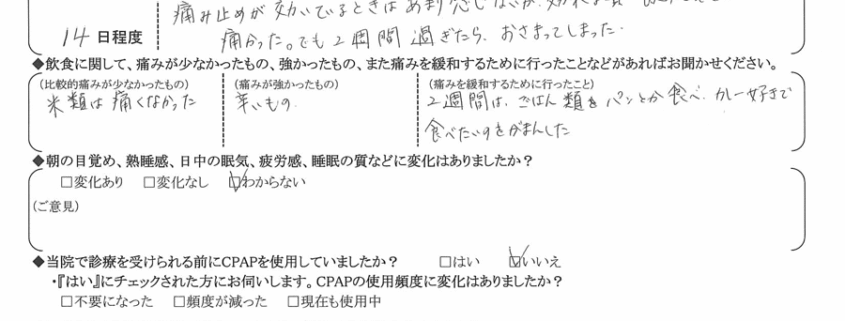 痛み止めが効いているときはあまり感じないが、
14 日程度
痛かった。でも2週間過ぎたら、おさまってしまった.
◆飲食に関して、痛みが少なかったもの、強かったもの、また痛みを緩和するために行ったことなどがあればお聞かせください。
(比較的痛みが少なかったもの) (痛みが強かったもの) (痛みを緩和するために行ったこと)
米類は痛くなかった 辛いもの. 2週間は、ごはん類をパンとか食べ、カレー好きで
食べたいのをがまんした
◆朝の目覚め、熟睡感、日中の眠気、疲労感、睡眠の質などに変化はありましたか？
□変化あり □変化なし ☑わからない
(ご意見)
◆当院で診療を受けられる前にCPAPを使用していましたか？ □はい ☑いいえ
・『はい』にチェックされた方にお伺いします。CPAPの使用頻度に変化はありましたか？
□不要になった □頻度が減った □現在も使用中